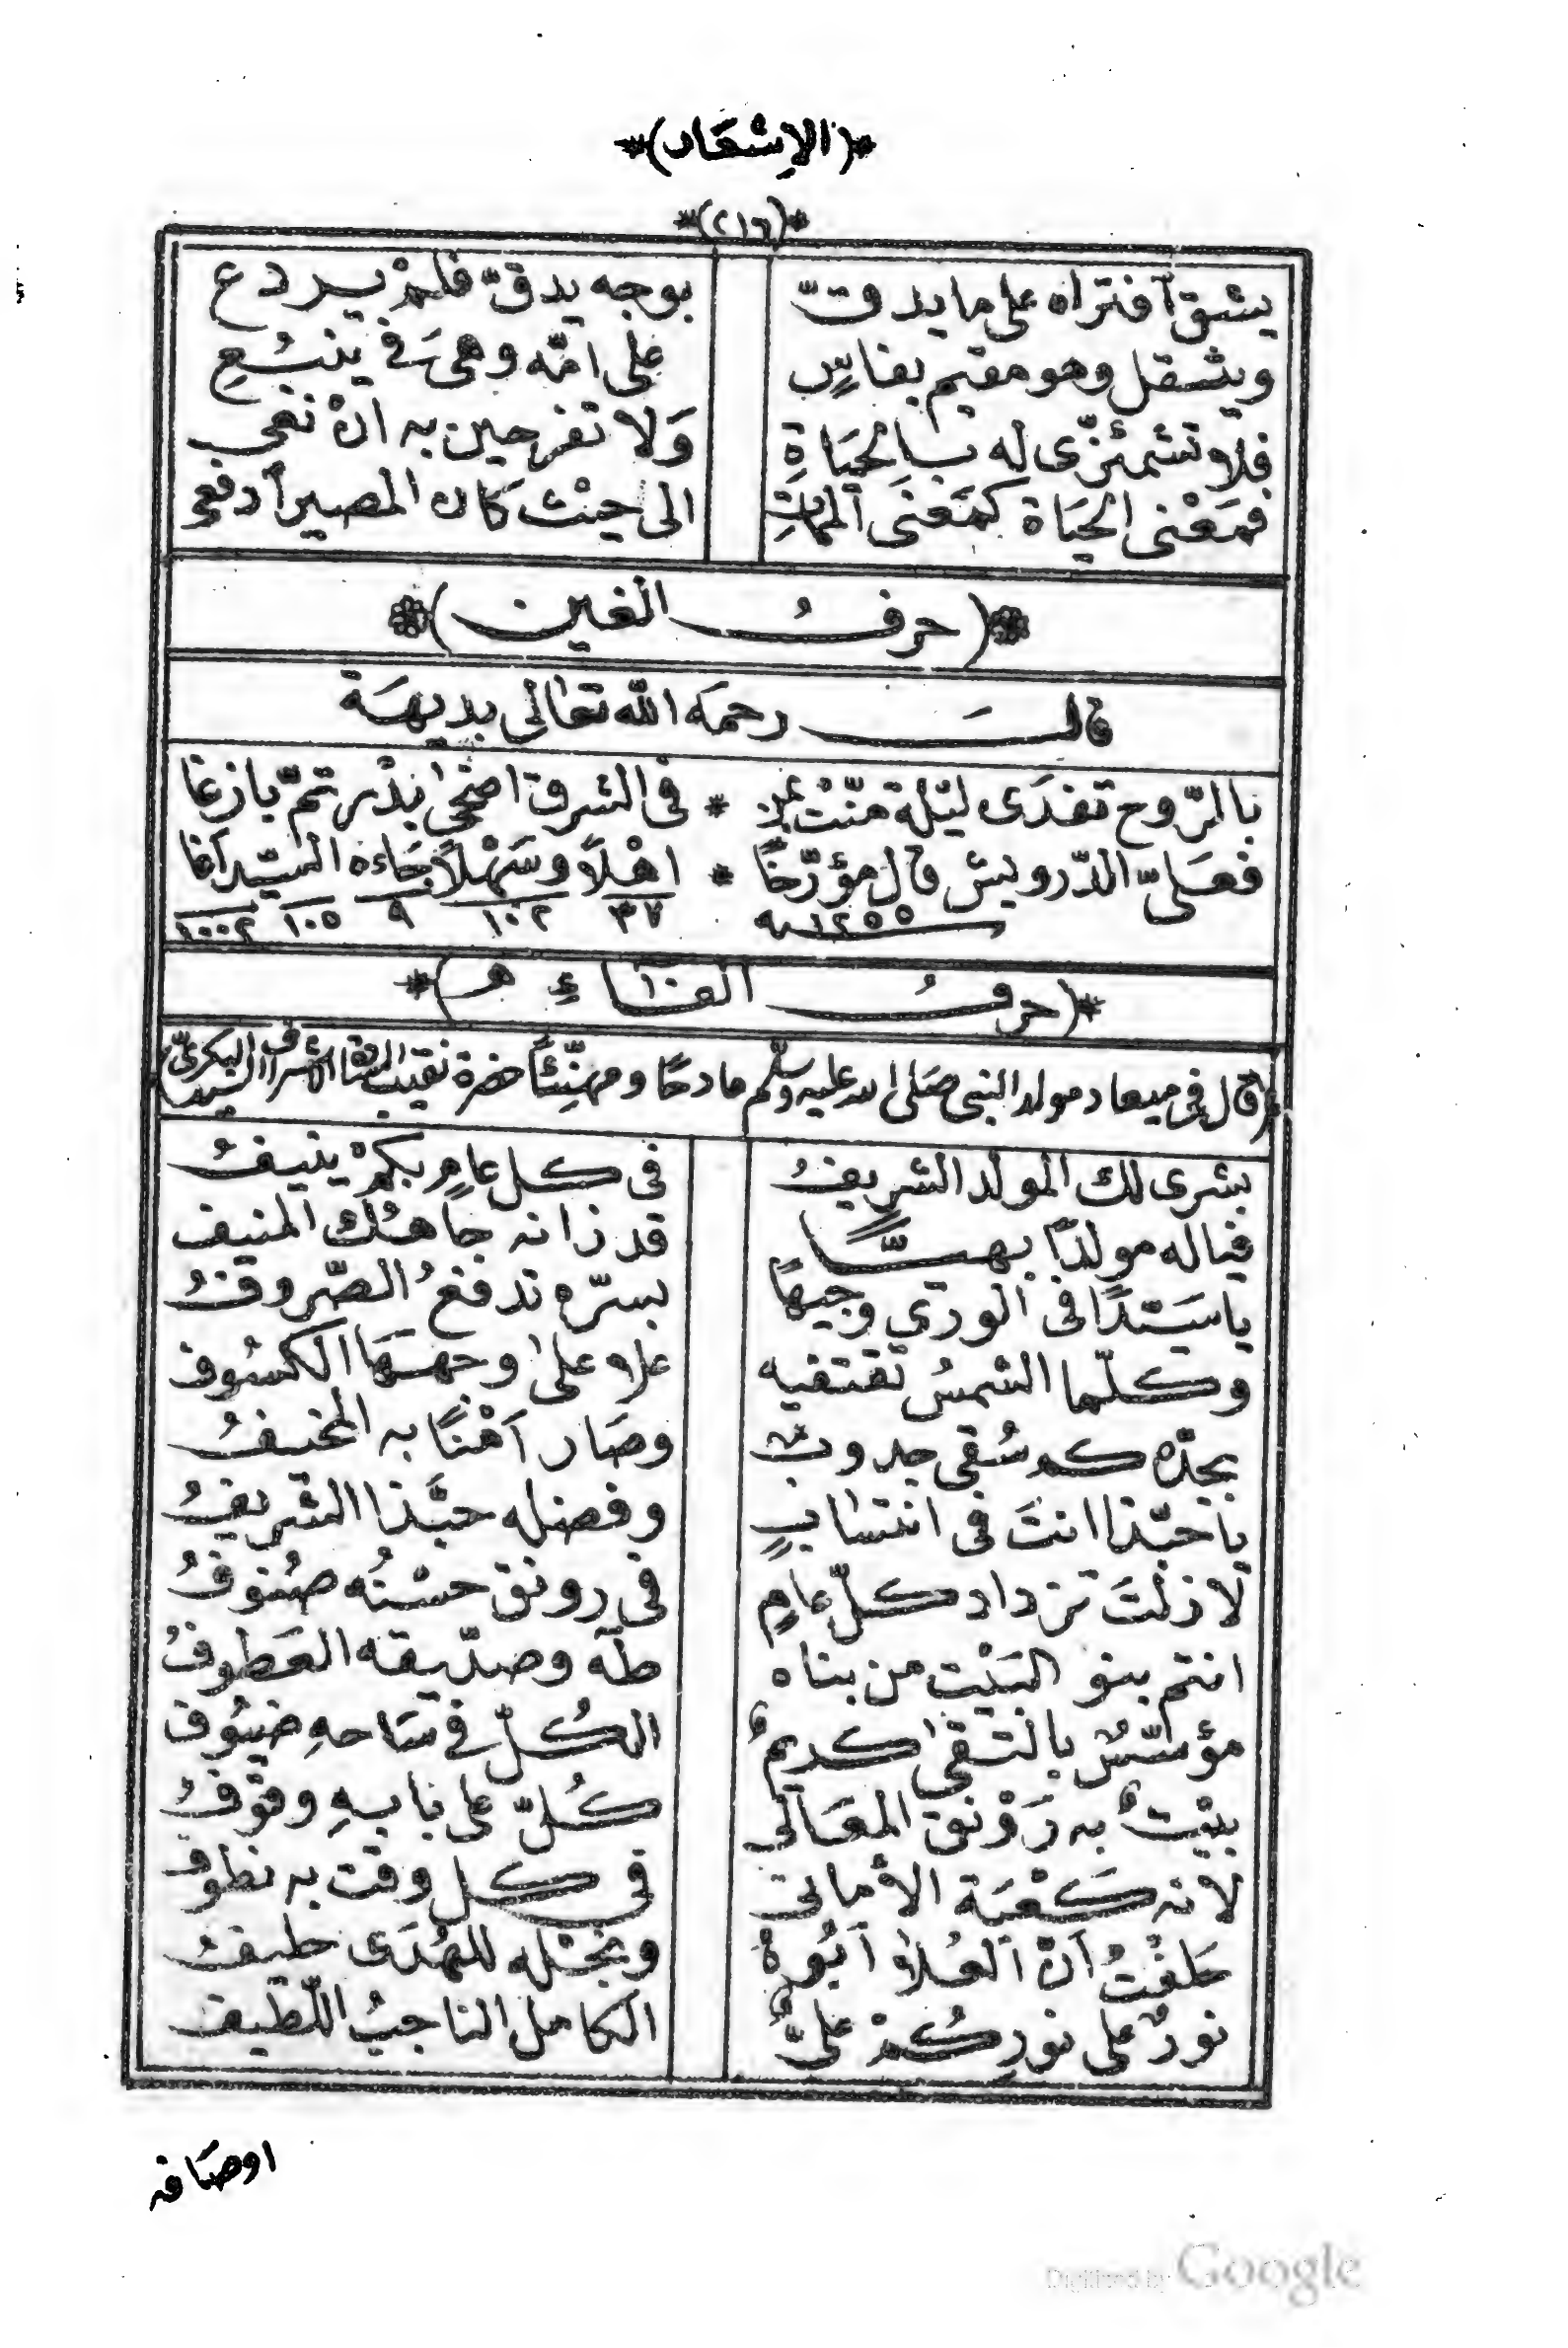 *(الإشعار)*
*(٢١٦)*
يشق آفتراه على ما يدقّ بوجه يدقّ فلمْ يردع
ويثقل وهو مقيم بفاسٍ على امّه وهىَ فى ينبُعِ
فلا تشمئزّى له بالحيَاةِ وَلا تفرحين به انْ نعى
فمَعْنى الحيَاة كمَعْنَى الممَاتِ الى حيْث كان المصير آدفعى
*(حرفُ الغين)*
قالَ رحمَه الله تعالى بديهَة
بالرّوح تفدَى ليْلة منّتْ بمن * فى الشرق اضحى بدْر تمّ بازغا
فعَلىّ الدّرويش قال مؤرّخًا * اهْلاً وسَهْلاً جَاءه السّيد آغا
سنه ١٢٥٥ ٣٧ ١٠٢ ٩ ١٠٥ ١٠٠٢
*(حرفُ الفاءِ)*
(قال فى ميعاد مولد النبى صَلى الله عليه وسلّم مادحًا ومهنِّئًا حضرة نقيب السادة الاشراف السيد البكرىّ)
بشرى لك المولد الشريفُ فى كل عامٍ بكمْ ينيفُ
فياله مولدًا بهيًّا قد زانه جاهُك المنيف
يا سَيّدًا فى الورى وجيهًا بسرّه تدفعُ الصّروفُ
وكلّما الشمسُ تقتفيه علا على وجهَهَا الكسُوف
بجدّه كم سُقى جدوبٌ وصَار اَمْنًا به المخيفُ
يا حبّذا انتَ فى انتسابٍ وفضله حبَّذا الشريفُ
لا زلْتَ تزداد كلّ عامٍ فى رونق حسْنُه صُنوفُ
انتم بنو البَيْت من بناه طهَ وصدّيقه العَطوفُ
مؤسّسٌ بالتقى كريمٌ الكُلّ فى سَاحهِ ضيُوف
بيْتٌ به رَوْنق المعَالى كُلّ على بابهِ وقوفُ
لانه كَعْبَة الأمانى فى كل وقت به نطوف
حَلفْتُ انّ العُلا اَبُوهُ ونجْله للهُدَى حليفُ
نورٌ على نورِ كُنْ علىٌّ الكامل الناجبُ اللّطيف
اوصَافه
Digitized by Google